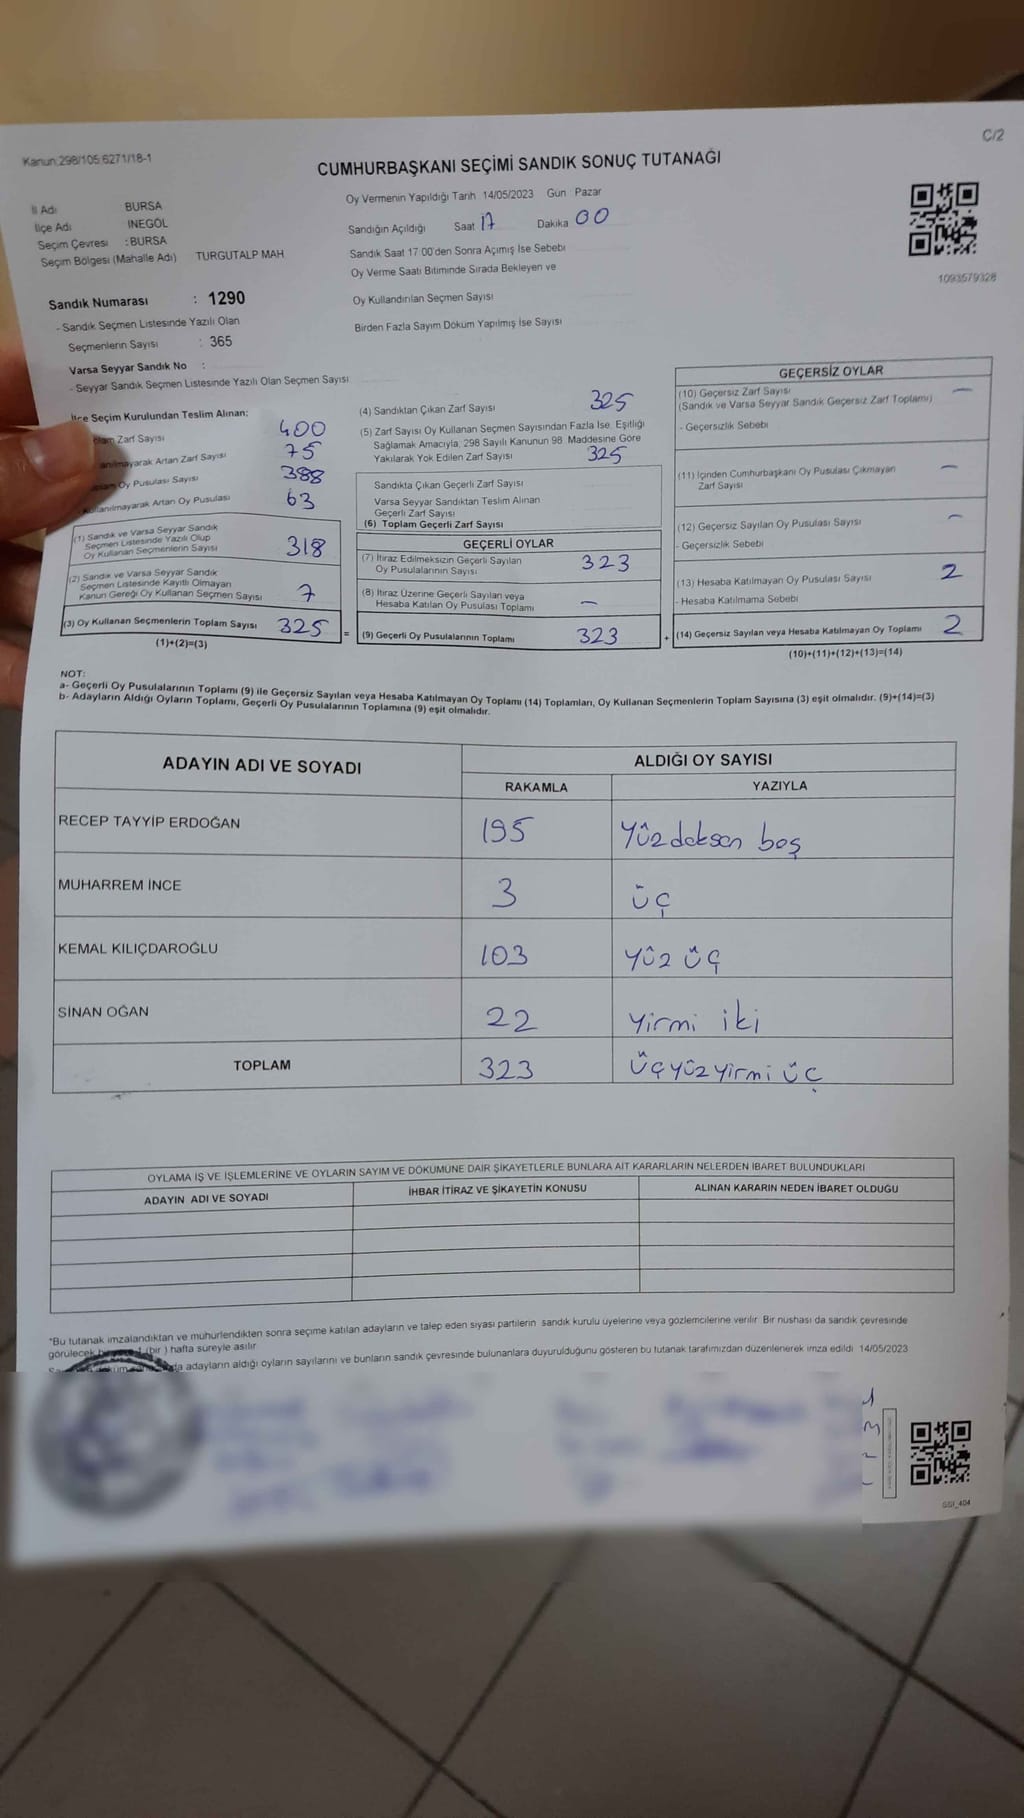 C/2
Kanun:298/105,6271/18-1
CUMHURBAŞKANI SEÇİMİ SANDIK SONUÇ TUTANAĞI
İl Adı BURSA
İlçe Adı İNEGÖL
Seçim Çevresi : BURSA
Seçim Bölgesi (Mahalle Adı) TURGUTALP MAH
Oy Vermenin Yapıldığı Tarih 14/05/2023 Gün Pazar
Sandığın Açıldığı Saat 17 Dakika 00
Sandık Saat 17:00'den Sonra Açımış İse Sebebi
Oy Verme Saati Bitiminde Sırada Bekleyen ve
Oy Kullandırılan Seçmen Sayısı
Birden Fazla Sayım Döküm Yapılmış İse Sayısı
1093579328
Sandık Numarası : 1290
- Sandık Seçmen Listesinde Yazılı Olan
Seçmenlerin Sayısı : 365
Varsa Seyyar Sandık No :
- Seyyar Sandık Seçmen Listesinde Yazılı Olan Seçmen Sayısı
İlçe Seçim Kurulundan Teslim Alınan:
Zarf Sayısı 400
Artan Zarf Sayısı 75
Oy Pusulası Sayısı 388
Kullanılmayarak Artan Oy Pusulası 63
(1) Sandık ve Varsa Seyyar Sandık
Seçmen Listesinde Yazılı Olup
Oy Kullanan Seçmenlerin Sayısı 318
(2) Sandık ve Varsa Seyyar Sandık
Seçmen Listesinde Kayıtlı Olmayan
Kanun Gereği Oy Kullanan Seçmen Sayısı 7
(3) Oy Kullanan Seçmenlerin Toplam Sayısı 325 =
(1)+(2)=(3)
(4) Sandıktan Çıkan Zarf Sayısı 325
(5) Zarf Sayısı Oy Kullanan Seçmen Sayısından Fazla İse, Eşitliği
Sağlamak Amacıyla, 298 Sayılı Kanunun 98. Maddesine Göre
Yakılarak Yok Edilen Zarf Sayısı 325
Sandıkta Çıkan Geçerli Zarf Sayısı
Varsa Seyyar Sandıktan Teslim Alınan
Geçerli Zarf Sayısı
(6) Toplam Geçerli Zarf Sayısı
GEÇERLİ OYLAR
(7) İtiraz Edilmeksizin Geçerli Sayılan
Oy Pusulalarının Sayısı 323
(8) İtiraz Üzerine Geçerli Sayılan veya
Hesaba Katılan Oy Pusulası Toplamı –
(9) Geçerli Oy Pusulalarının Toplamı 323 +
GEÇERSİZ OYLAR
(10) Geçersiz Zarf Sayısı –
(Sandık ve Varsa Seyyar Sandık Geçersiz Zarf Toplamı)
- Geçersizlik Sebebi
(11) İçinden Cumhurbaşkanı Oy Pusulası Çıkmayan –
Zarf Sayısı
(12) Geçersiz Sayılan Oy Pusulası Sayısı –
- Geçersizlik Sebebi
(13) Hesaba Katılmayan Oy Pusulası Sayısı 2
- Hesaba Katılmama Sebebi
(14) Geçersiz Sayılan veya Hesaba Katılmayan Oy Toplamı 2
(10)+(11)+(12)+(13)=(14)
NOT:
a- Geçerli Oy Pusulalarının Toplamı (9) ile Geçersiz Sayılan veya Hesaba Katılmayan Oy Toplamı (14) Toplamları, Oy Kullanan Seçmenlerin Toplam Sayısına (3) eşit olmalıdır. (9)+(14)=(3)
b- Adayların Aldığı Oyların Toplamı, Geçerli Oy Pusulalarının Toplamına (9) eşit olmalıdır.
ADAYIN ADI VE SOYADI ALDIĞI OY SAYISI
RAKAMLA YAZIYLA
RECEP TAYYİP ERDOĞAN 195 Yüzdoksan beş
MUHARREM İNCE 3 üç
KEMAL KILIÇDAROĞLU 103 Yüz üç
SİNAN OĞAN 22 Yirmi iki
TOPLAM 323 üçyüzyirmi üç
OYLAMA İŞ VE İŞLEMLERİNE VE OYLARIN SAYIM VE DÖKÜMÜNE DAİR ŞİKAYETLERLE BUNLARA AİT KARARLARIN NELERDEN İBARET BULUNDUKLARI
ADAYIN ADI VE SOYADI İHBAR İTİRAZ VE ŞİKAYETİN KONUSU ALINAN KARARIN NEDEN İBARET OLDUĞU
*Bu tutanak imzalandıktan ve mühürlendikten sonra seçime katılan adayların ve talep eden siyasi partilerin sandık kurulu üyelerine veya gözlemcilerine verilir. Bir nüshası da sandık çevresinde
görülecek (bir ) hafta süreyle asılır
adayların aldığı oyların sayılarını ve bunların sandık çevresinde bulunanlara duyurulduğunu gösteren bu tutanak tarafımızdan düzenlenerek imza edildi 14/05/2023
SSI_404